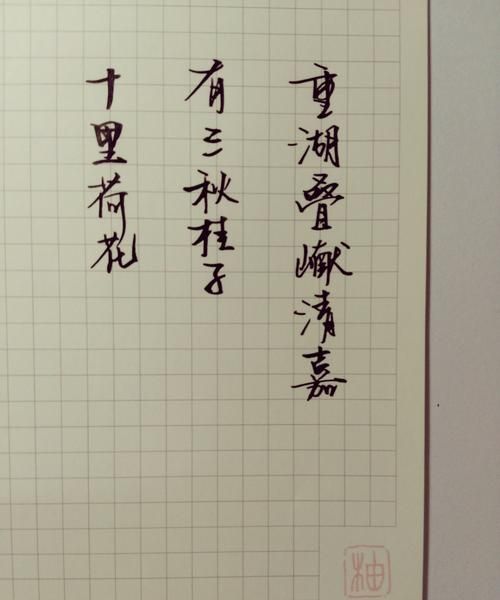 重湖疊巘清嘉
有三秋桂子
十里荷花
柚